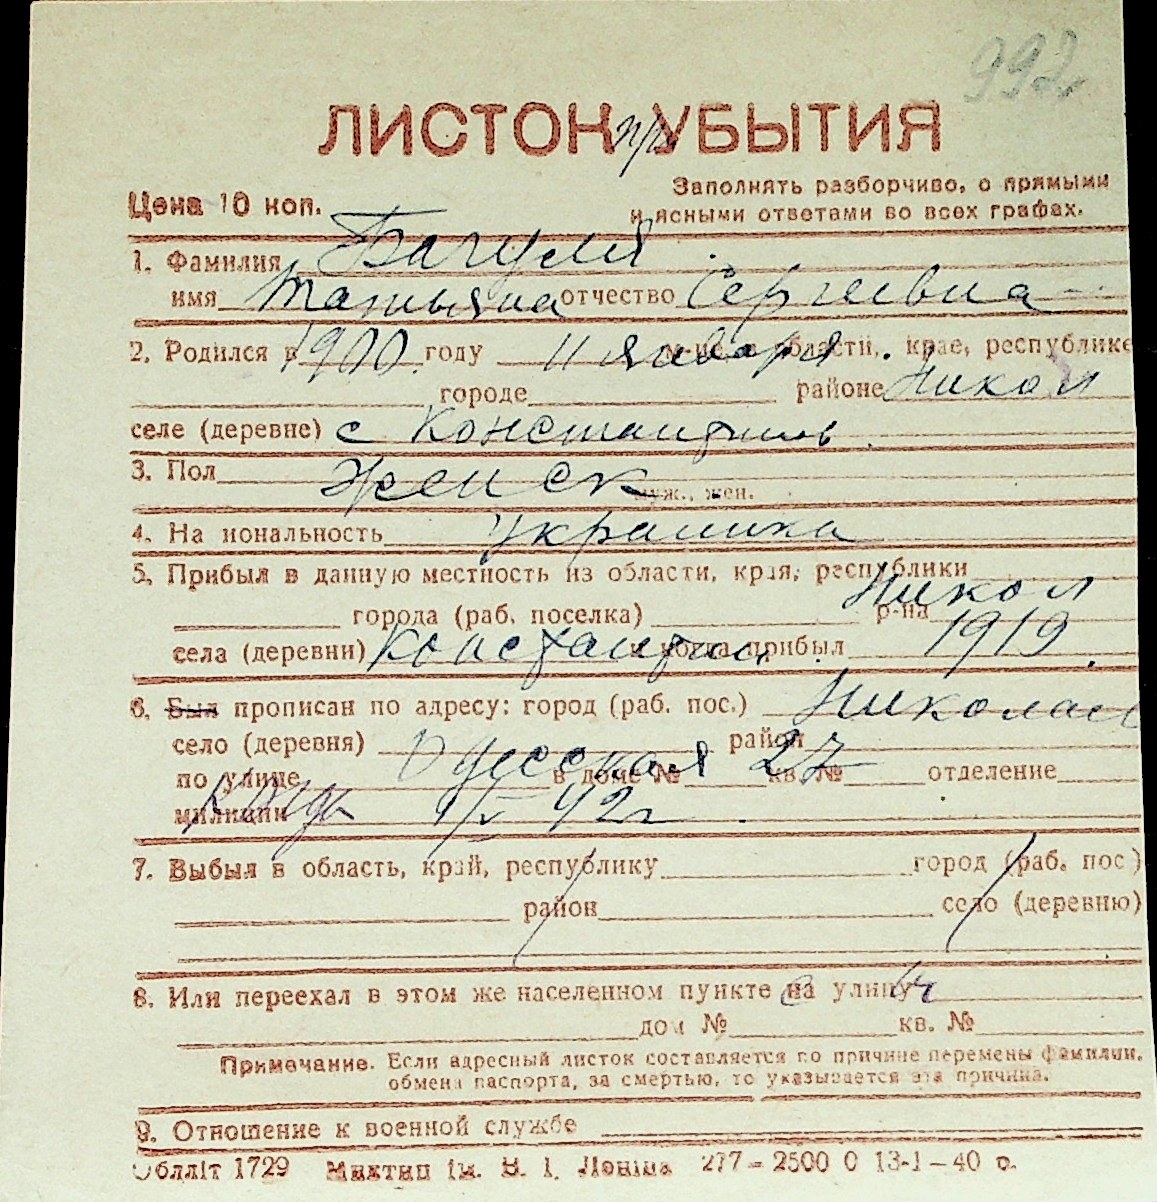 992
ЛИСТОК при УБЫТИЯ
Цена 10 коп.
Заполнять разборчиво, о прямыми
и ясными ответами во всех графах.
1. Фамилия Багуля
имя Татьяна отчество Сергеевна
2. Родился в 1900 году 11 января области, крае, республике
городе районе Никол
селе (деревне) с Константиновь
3. Пол Женск муж., жен.
4. На иональность украинка
5. Прибыл в данную местность из области, края, республики
города (раб. поселка) р-на Никол
села (деревни) Констант и когда прибыл 1919.
6. Был прописан по адресу: город (раб. пос.) Николаев
село (деревня) район
по улице Одесская в доме № 27 кв. № отделение
милиции 42г.
7. Выбыл в область, край, республику город (раб. пос)
район село (деревню)
8. Или переехал в этом же населенном пункте на улицу
дом № кв. №
Примечание. Если адресный листок составляется по причине перемены фамилии,
обмена паспорта, за смертью, то указывается эта причина.
9. Отношение к военной службе
Облліт 1729 Миктип ім. В. І. Леніна 277–2500 0 13-1–40 р.